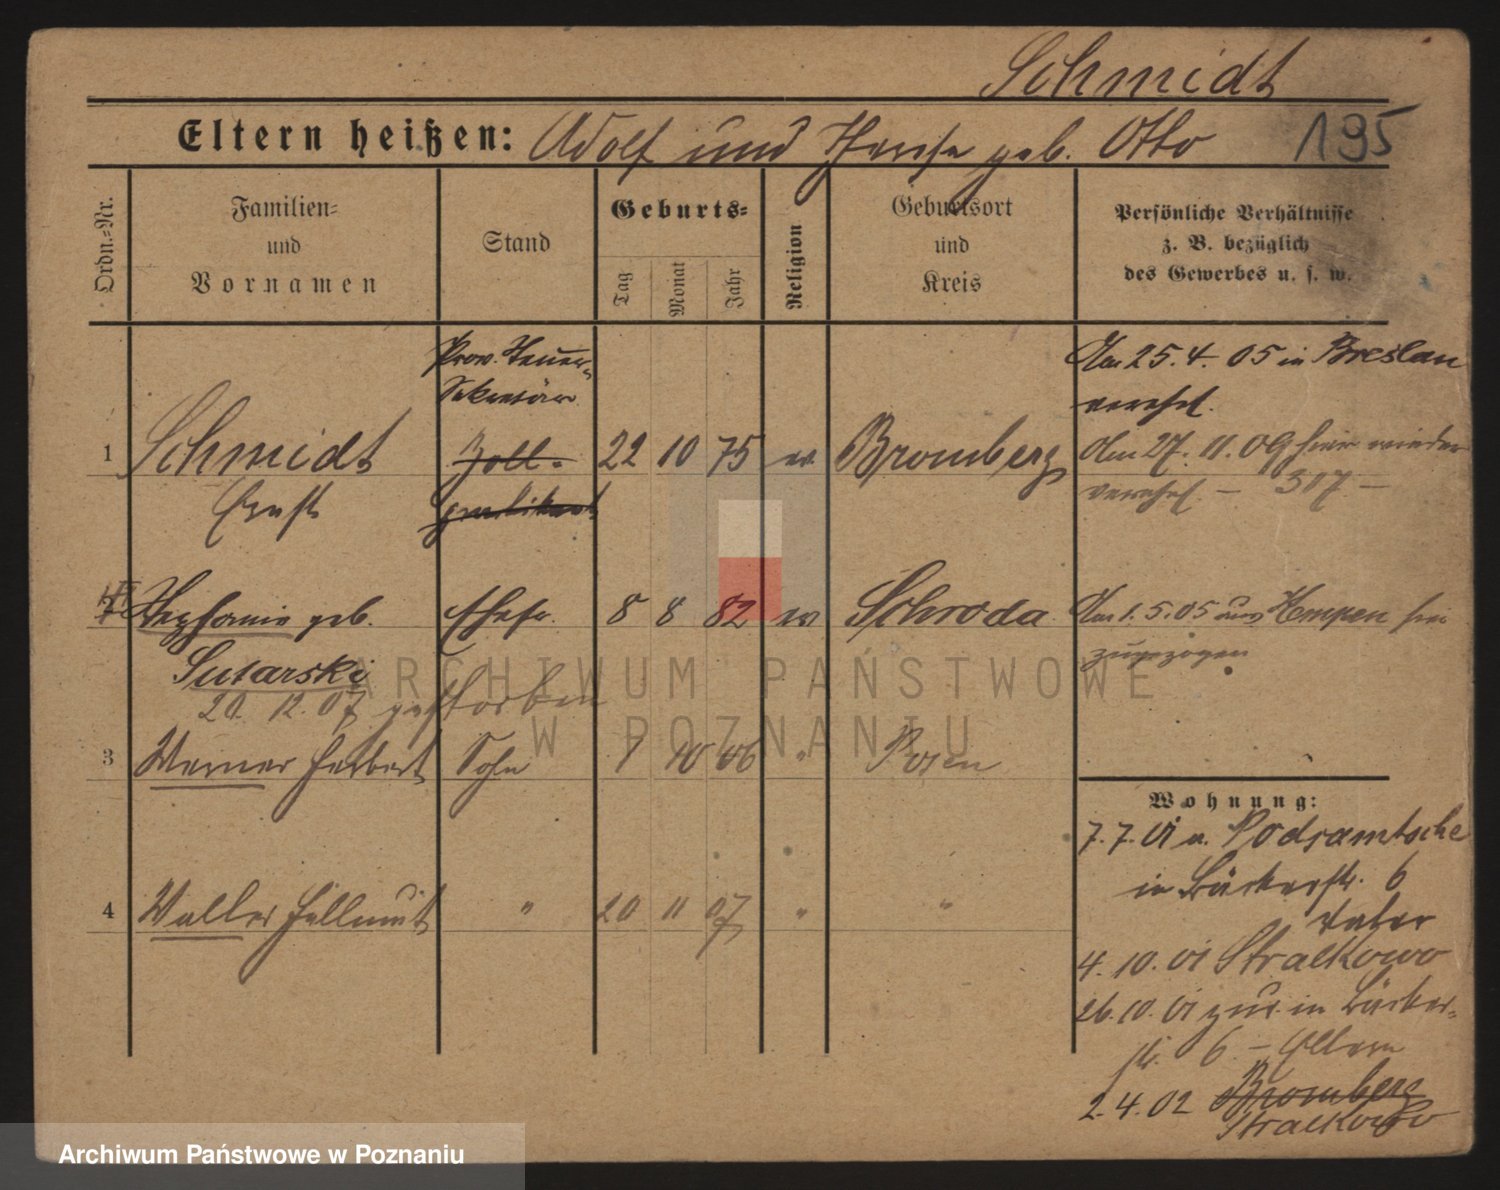 Schmidt
Eltern heißen: Adolf und Therese geb. Otto 195
Ordn.=Nr.
Familien=
und
Vornamen
Stand
Geburts=
Tag
Monat
Jahr
Religion
Geburtsort
und
Kreis
Persönliche Verhältnisse
z. B. bezüglich
des Gewerbes u. s. w.
Prov. Steuer-
Sekretär
1 Schmidt Zoll- 22 10 75 ev Bromberg
Ernst praktikant
Am 25.4.05 in Breslau
vereh.
Am 27.11.09 hier wieder
vereh. — 317 —
2 Stephanie geb. Ehefr. 8 8 82 ev Schroda
Sutarski
20.12.07 gestorben
Am 1.5.05 aus Kempen hier
zugezogen
3 Werner Herbert Sohn 1 10 06 " Posen
4 Walter Hellmut " 20 11 07 " "
Wohnung:
7.7.01 a. Podsamtsche
in Bäckerstr. 6
Vater
4.10.01 Stralkowo
26.10.01 zur. in Bäcker-
str. 6 – Eltern
2.4.02 Bromberg
Stralkowo
ARCHIWUM PAŃSTWOWE
W POZNANIU
Archiwum Państwowe w Poznaniu